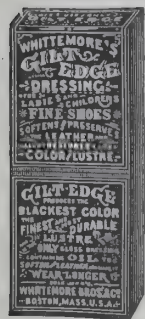 WHITTEMORE'S
GILT
EDGE
DRESSING
FOR
LADIES AND CHILDREN'S
FINE SHOES
SOFTENS PRESERVES
LEATHER
COLOR LUSTRE
GILT-EDGE
PRODUCES THE
BLACKEST COLOR
THE
FINEST DURABLE
LUSTRE
ONLY GLOSS DRESSING
CONTAINING OIL TO
SOFTEN LEATHER
WEAR LONGER
WHITTEMORE BROS & CO
BOSTON, MASS. U.S.A.